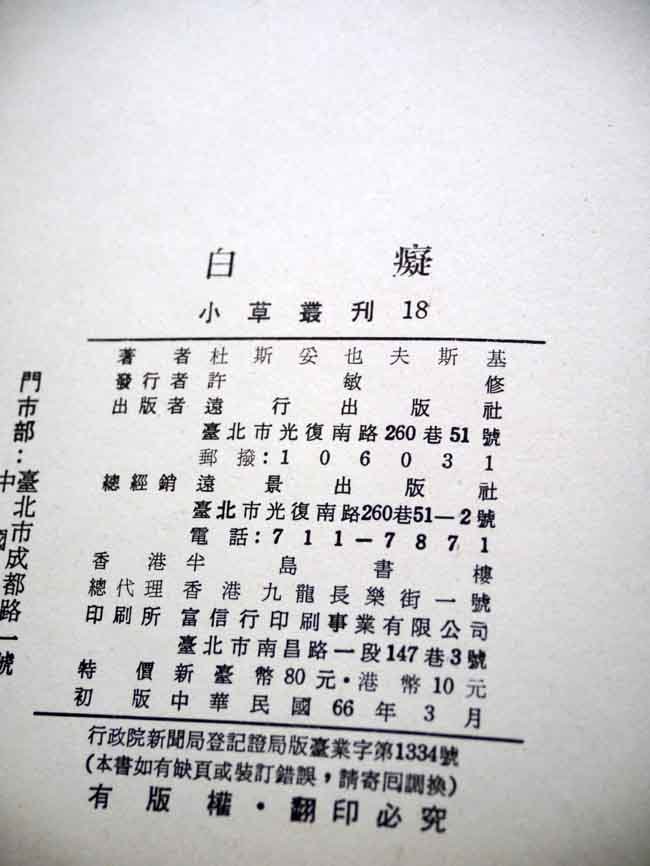 白癡
小草叢刊 18
著者 杜斯妥也夫斯基
發行者 許敏修
出版者 遠行出版社
臺北市光復南路260巷51號
郵撥:106031
總經銷 遠景出版社
臺北市光復南路260巷51—2號
電話:711—7871
香港半島書樓
總代理 香港九龍長樂街一號
印刷所 富信行印刷事業有限公司
臺北市南昌路一段147巷3號
特價 新臺幣80元・港幣10元
初版 中華民國66年3月
行政院新聞局登記證局版臺業字第1334號
(本書如有缺頁或裝訂錯誤,請寄回調換)
有版權・翻印必究
門市部:臺北市成都路一號
中國